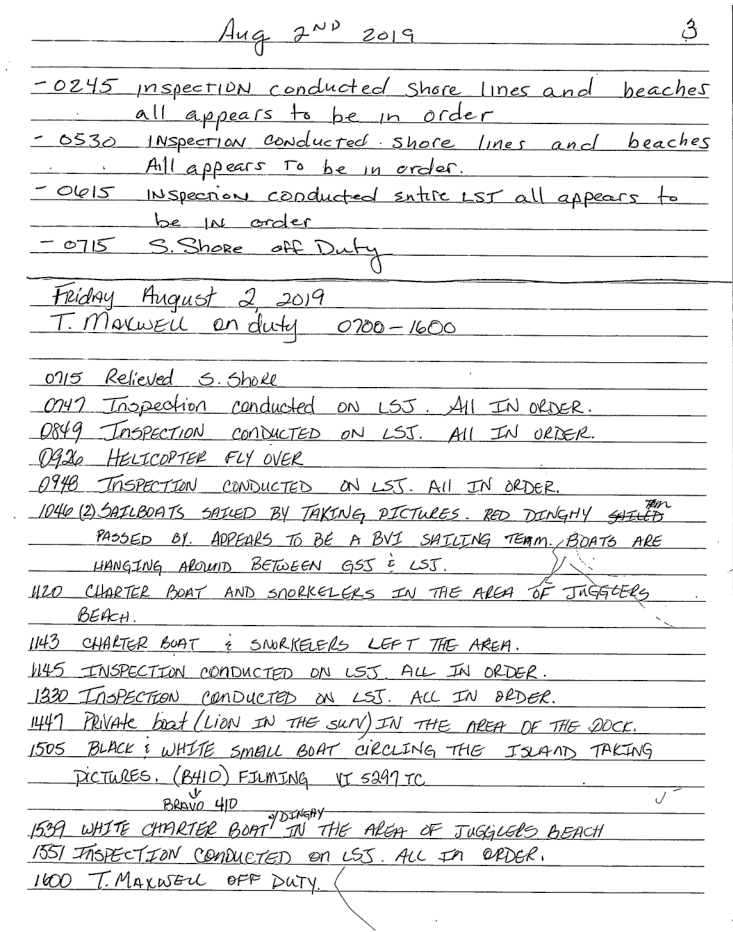 Aug 2ND 2019 3
- 0245 inspection conducted shore lines and beaches
all appears to be in order
- 0530 inspection conducted shore lines and beaches
All appears to be in order.
- 0615 inspection conducted entire LSJ all appears to
be in order
- 0715 S. Shore off Duty
Friday August 2, 2019
T. Maxwell on duty 0700-1600
0715 Relieved S. Shore
0747 Inspection conducted on LSJ. All IN ORDER.
0849 INSPECTION CONDUCTED ON LSJ. All IN ORDER.
0926 HELICOPTER FLY OVER
0948 INSPECTION CONDUCTED ON LSJ. All IN ORDER.
1046 (2) SAILBOATS SAILED BY TAKING PICTURES. RED DINGHY
PASSED BY. APPEARS TO BE A BVI SAILING TEAM. BOATS ARE
HANGING AROUND BETWEEN GSJ & LSJ.
1120 CHARTER BOAT AND SNORKELERS IN THE AREA OF JUGGLERS
BEACH.
1143 CHARTER BOAT & SNORKELERS LEFT THE AREA.
1145 INSPECTION CONDUCTED ON LSJ. ALL IN ORDER.
1330 INSPECTION CONDUCTED ON LSJ. ALL IN ORDER.
1447 Private boat (LION IN THE SUN) IN THE AREA OF THE DOCK.
1505 BLACK & WHITE SMALL BOAT CIRCLING THE ISLAND TAKING
PICTURES. (B410) FILMING VI 5297 TC
BRAVO 410
1539 WHITE CHARTER BOAT W/DINGHY IN THE AREA OF JUGGLERS BEACH
1551 INSPECTION CONDUCTED ON LSJ. ALL IN ORDER.
1600 T. MAXWELL OFF DUTY.